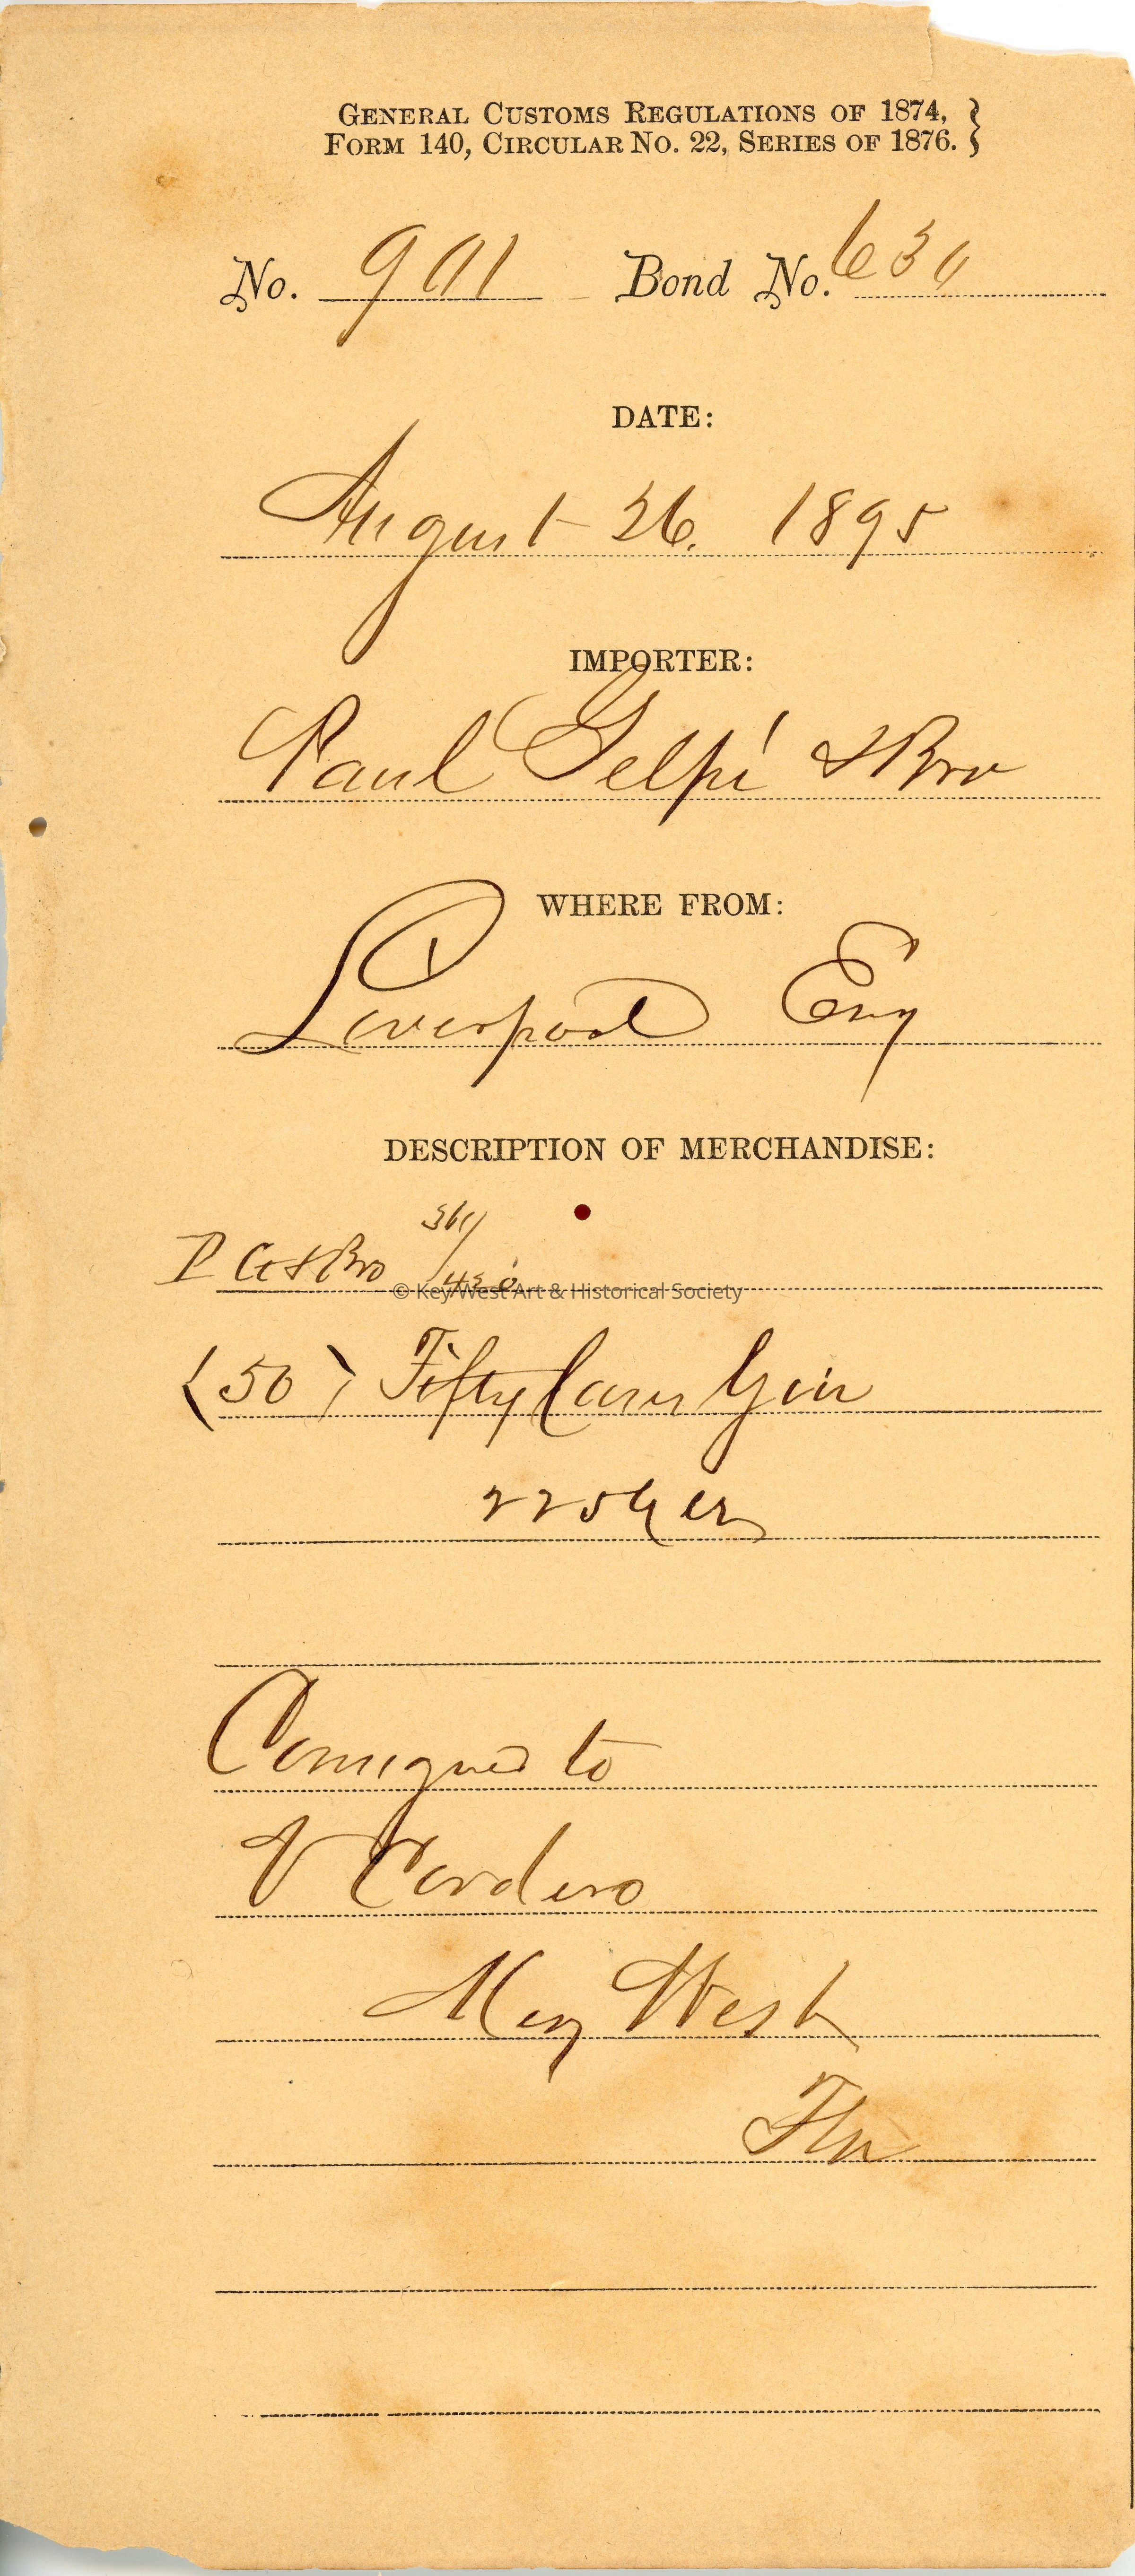 GENERAL CUSTOMS REGULATIONS OF 1874, }
FORM 140, CIRCULAR NO. 22, SERIES OF 1876. }
No. 901 Bond No. 630
DATE:
August 26. 1895
IMPORTER:
Paul Gelpi & Bro
WHERE FROM:
Liverpool Eng
DESCRIPTION OF MERCHANDISE:
P G & Bro 361/420
© Key West Art & Historical Society
(50) Fifty Cases Gin
Consigned to
V Cordero
Key West
Fla